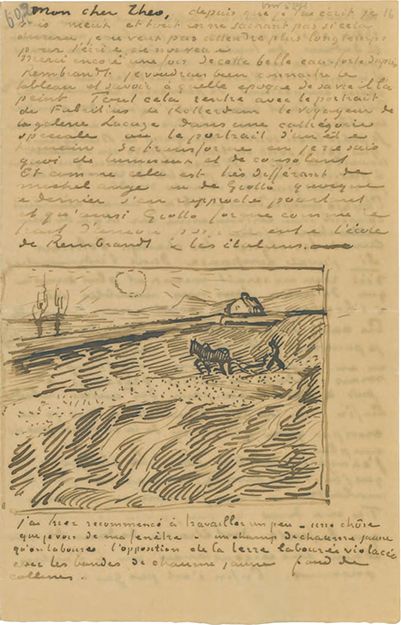 Mon cher Theo, depuis que je t'ai écrit je
suis mieux et tout en ne sachant pas si cela
durera je ne veux pas attendre plus longtemps
pour t'écrire de nouveau
Merci encore une fois de cette belle eau forte d'après
Rembrandt. je voudrais bien connaitre le
tableau et savoir à quelle époque de sa vie il l'a
peint. Tout cela rentre avec le portrait
de Fabritius de Rotterdam le voyageur de
la galerie Lacaze dans une catégorie
speciale où le portrait d'un être
humain se transforme en je ne sais
quoi de lumineux et de consolant
Et comme cela est très différent de
michel ange ou de Giotto quoique
ce dernier s'en rapproche pourtant
et qu'ainsi Giotto forme comme le
trait d'union entre l'école
de Rembrandt & les italiens.
J'ai hier recommencé à travailler un peu - une chose
que je vois de ma fenêtre - un champ de chaume jaune
qu'on laboure l'opposition de la terre labourée violacée
avec les bandes de chaume jaune fond de
collines.